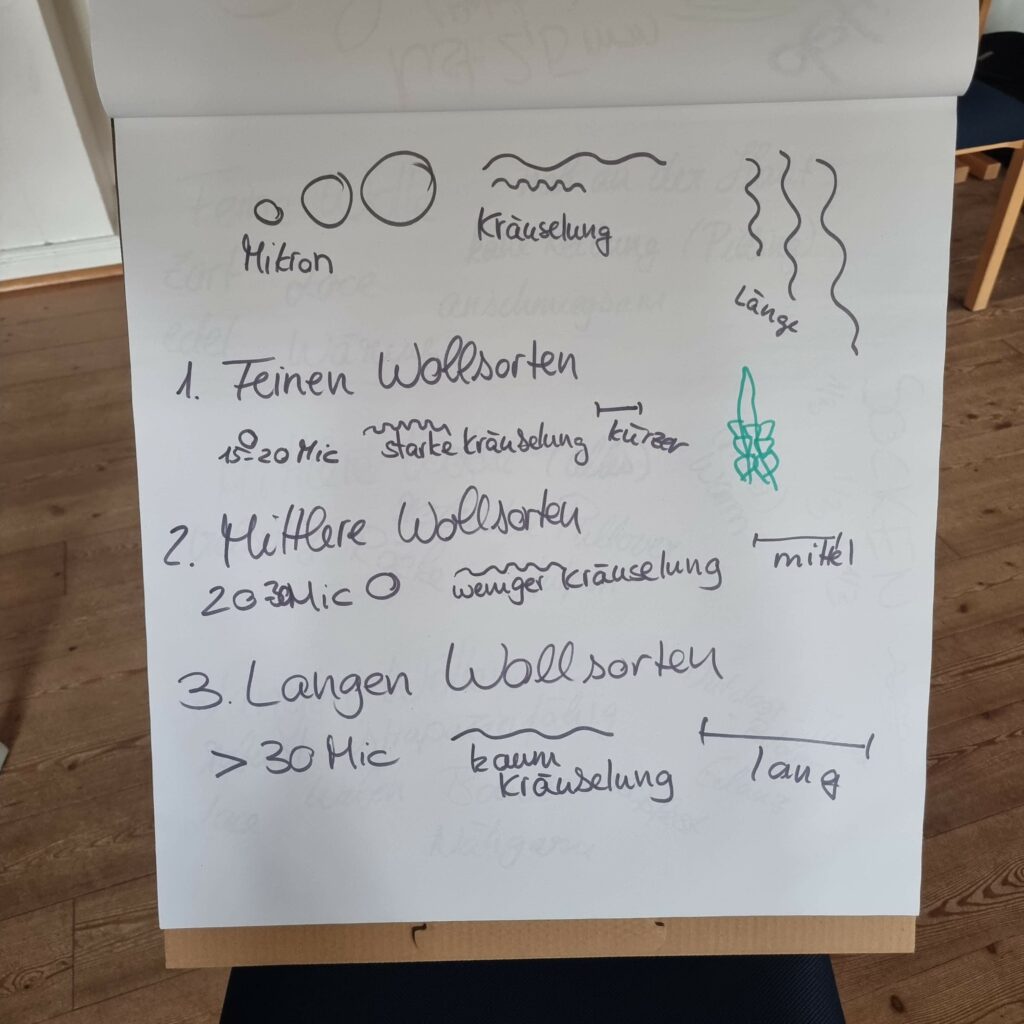 Mikron
Kräuselung
Länge
1. Feinen Wollsorten
15-20 Mic starke Kräuselung kürzer
2. Mittlere Wollsorten
20 30 Mic weniger Kräuselung mittel
3. Langen Wollsorten
> 30 Mic kaum Kräuselung lang